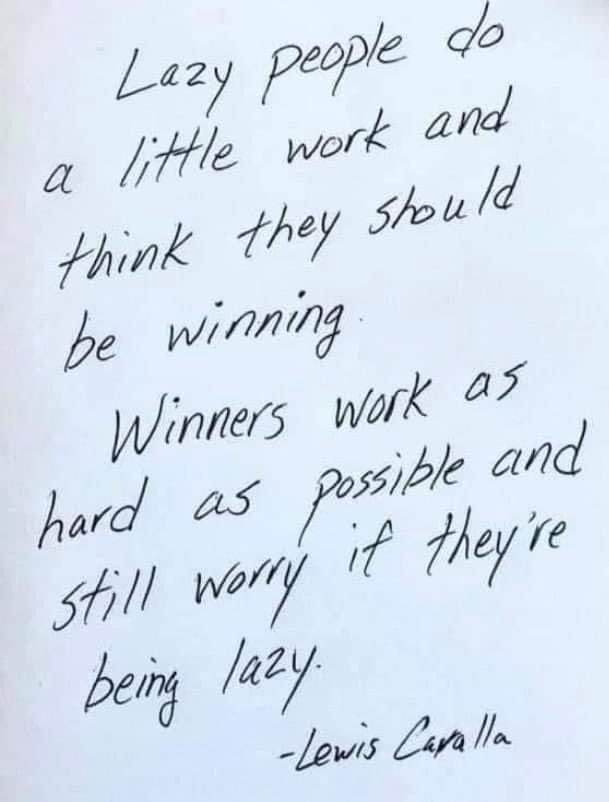 Lazy people do
a little work and
think they should
be winning.
Winners work as
hard as possible and
still worry if they're
being lazy.
-Lewis Caralla